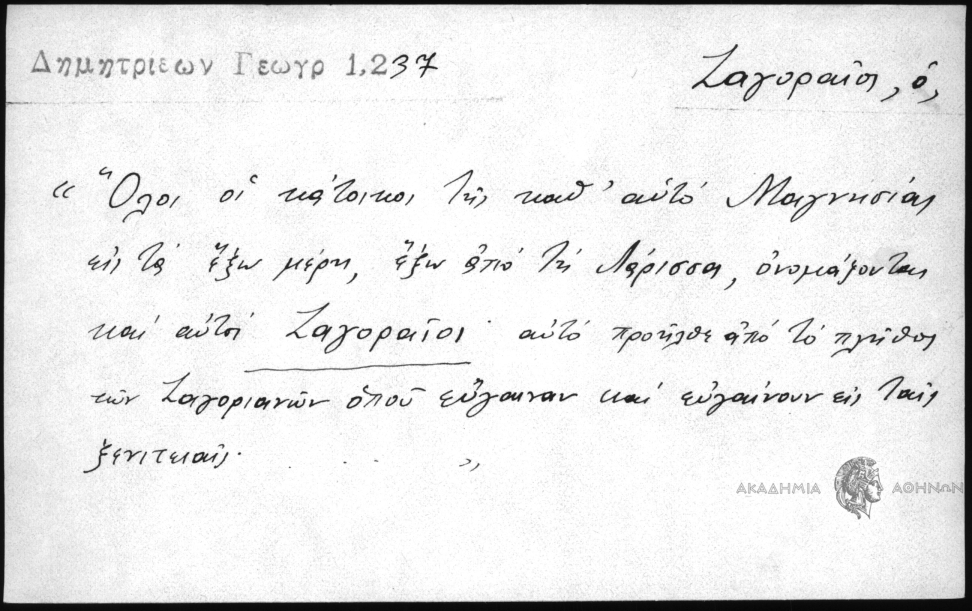 Δημητριεων Γεωγρ 1,237
Ζαγοραῖοι, ὁ,
« Ὅλοι οἱ κάτοικοι τῆς καθ' αὑτό Μαγνησίας
εἰς τὰ ἔξω μέρη, ἔξω ἀπό τή Λάρισσα, ὀνομάζονται
καί αὐτοί Ζαγοραῖοι· αὐτό προῆλθε ἀπό τό πλῆθος
τῶν Ζαγοριανῶν ὁποῦ εὔγαιναν καί εὐγαίνουν εἰς ταῖς
ξενιτειαῖς. . . . »
ΑΚΑΔΗΜΙΑ ΑΘΗΝΩΝ